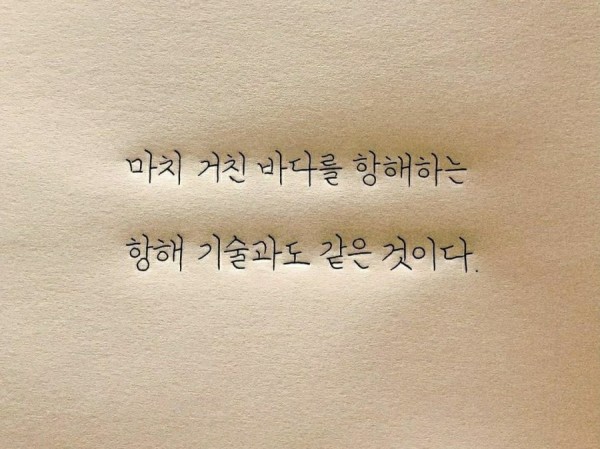 마치 거친 바다를 항해하는
항해 기술과도 같은 것이다.